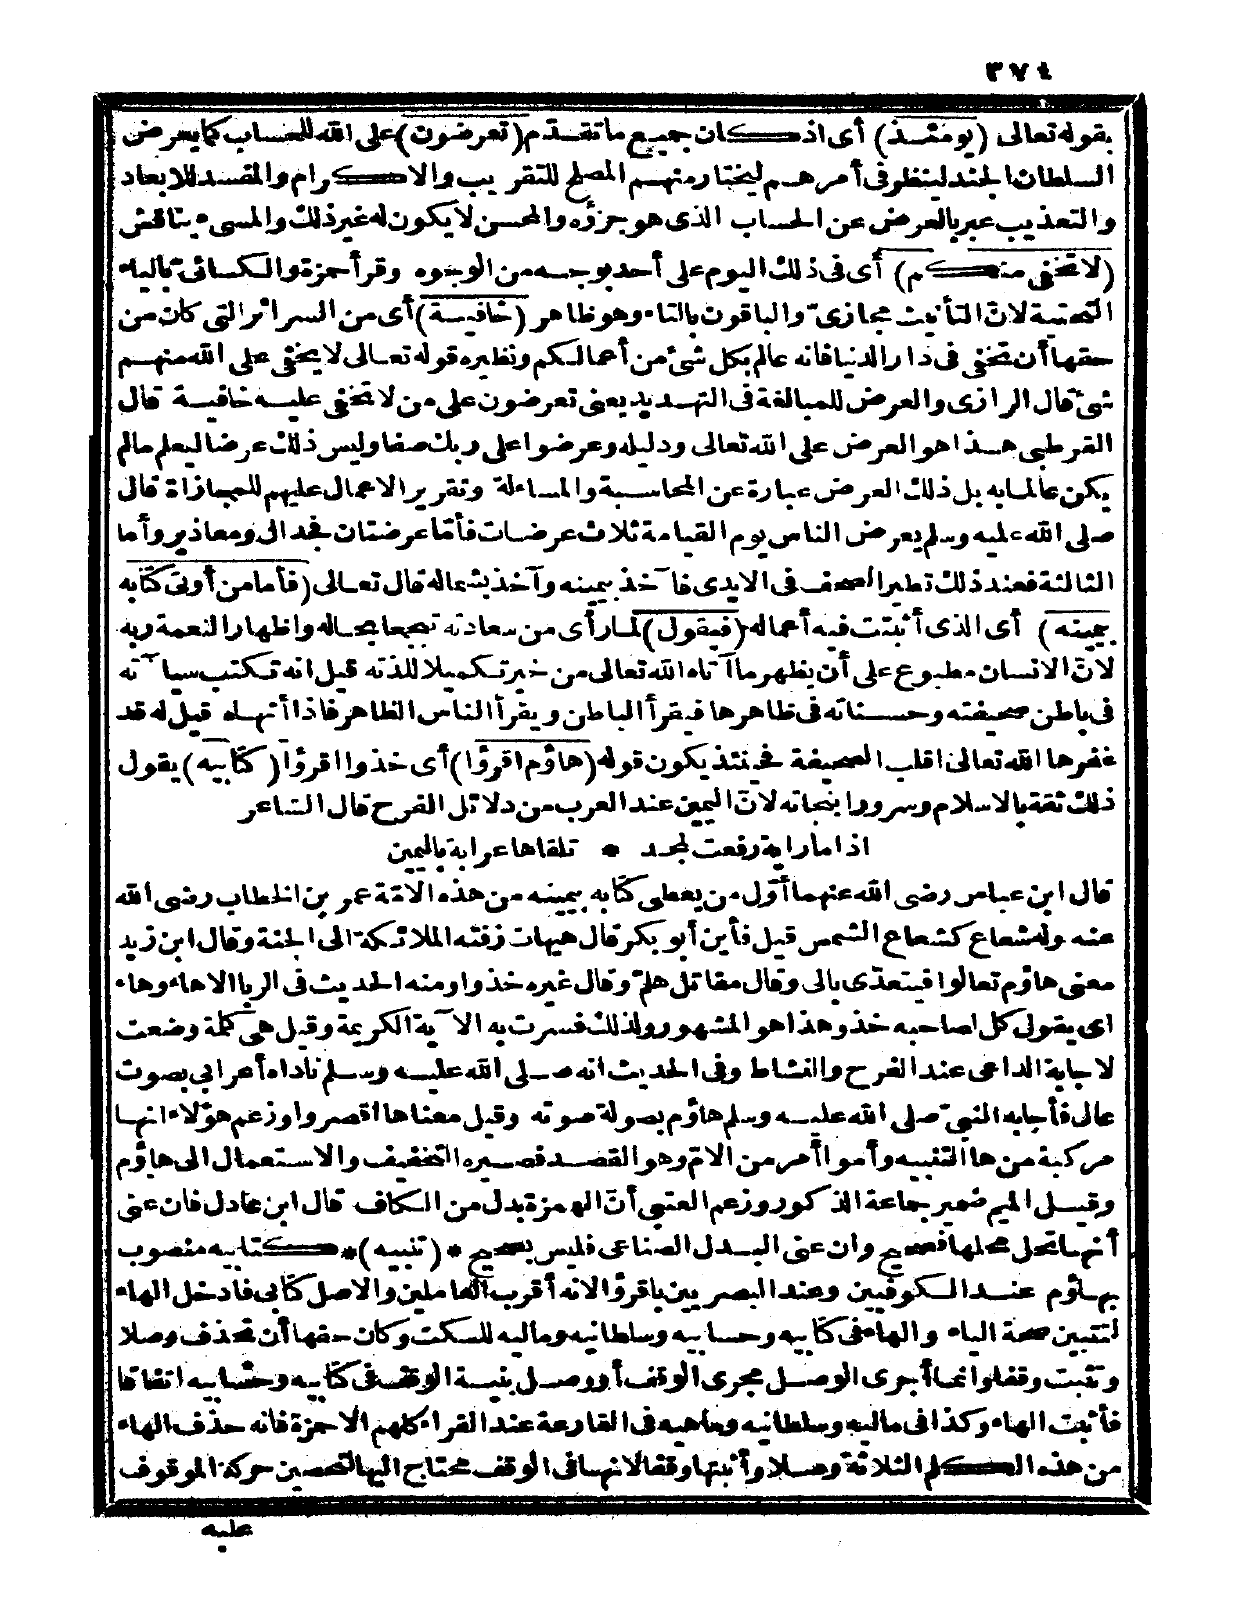 ٣٧٤
بقوله تعالى (يومئذ) أى اذ كان جميع ما تقدّم (تعرضون) على الله للحساب كما يعرض
السلطان الجند لينظر فى أمرهم ليختار منهم المصلح للتقريب والاكرام والمفسد للابعاد
والتعذيب عبر بالعرض عن الحساب الذى هو جزؤه والمحسن لا يكون له غير ذلك والمسىء يناقش
(لا تخفى منكم) أى فى ذلك اليوم على أحد بوجه من الوجوه وقرأ حمزة والكسائىّ بالياء
التحتية لانّ التأنيث مجازىّ والباقون بالتاء وهو ظاهر (خافية) أى من السرائر التى كان من
حقها أن تخفى فى دار الدنيا فانه عالم بكل شىء من أعمالكم ونظيره قوله تعالى لا يخفى على الله منهم
شىء قال الرازى والعرض للمبالغة فى التهديد يعنى تعرضون على من لا تخفى عليه خافية قال
القرطبى هذا هو العرض على الله تعالى ودليله وعرضوا على ربك صفا وليس ذلك عرضا ليعلم مالم
يكن عالما به بل ذلك العرض عبارة عن المحاسبة والمساءلة وتقرير الاعمال عليهم للمجازاة قال
صلى الله عليه وسلم يعرض الناس يوم القيامة ثلاث عرضات فأمّا عرضتان فجدال ومعاذير وأما
الثالثة فعند ذلك تطير الصحف فى الايدى فآخذ بيمينه وآخذ بشماله قال تعالى (فأما من أوتى كتابه
بيمينه) أى الذى أثبتت فيه أعماله (فيقول) لما رأى من سعادته تبجحا بحاله واظهار النعمة ربه
لانّ الانسان مطبوع على أن يظهر ما آتاه الله تعالى من خير تكميلا للذته قيل انه تكتب سيآته
فى باطن صحيفته وحسناته فى ظاهرها فيقرأ الباطن ويقرأ الناس الظاهر فاذا أنهاه قيل له قد
غفرها الله تعالى اقلب الصحيفة فحينئذ يكون قوله (هاؤم اقرؤا) أى خذوا اقرؤا (كتابيه) يقول
ذلك ثقة بالاسلام وسرورا بنجاته لانّ اليمين عند العرب من دلائل الفرح قال الشاعر
اذا ما راية رفعت لمجد * تلقاها عرابة باليمين
قال ابن عباس رضى الله عنهما أوّل من يعطى كتابه بيمينه من هذه الامّة عمر بن الخطاب رضى الله
عنه وله شعاع كشعاع الشمس قيل فأين أبو بكر قال هيهات زفته الملائكة الى الجنة وقال ابن زيد
معنى هاؤم تعالوا فيتعدّى بالى وقال مقاتل هلمّ وقال غيره خذوا ومنه الحديث فى الربا الا هاء وهاء
اى يقول كل لصاحبه خذ وهذا هو المشهور ولذلك فسرت به الآية الكريمة وقيل هى كلمة وضعت
لاجابة الداعى عند الفرح والنشاط وفى الحديث انه صلى الله عليه وسلم ناداه أعرابى بصوت
عال فأجابه النبىّ صلى الله عليه وسلم هاؤم بصولة صوته وقيل معناها اقصروا وزعم هؤلاء انها
مركبة من ها التنبيه وأموا أمر من الامّ وهو القصد فصيره التخفيف والاستعمال الى هاؤم
وقيل الميم ضمير جماعة الذكور وزعم العتبى أنّ الهمزة بدل من الكاف قال ابن عادل فان عنى
أنها تحل محلها فصحيح وان عنى البدل الصناعى فليس بصحيح *(تنبيه)* كتابيه منصوب
بهاؤم عند الكوفيين وعند البصريين باقرؤا لانه أقرب العاملين والاصل كتابى فادخل الهاء
لتتبين صحة الياء والهاء فى كتابيه وحسابيه وسلطانيه وماليه للسكت وكان حقها أن تحذف وصلا
وتثبت وقفا وانما أجرى الوصل مجرى الوقف أو وصل بنية الوقف فى كتابيه وحسابيه اتفاقا
فأثبت الهاء وكذا فى ماليه وسلطانيه وماهيه فى القارعة عند القراء كلهم الا حمزة فانه حذف الهاء
من هذه الكلم الثلاثة وصلا وأثبتها وقفا لانها فى الوقف محتاج اليها لتحصين حركة الموقوف
عليه